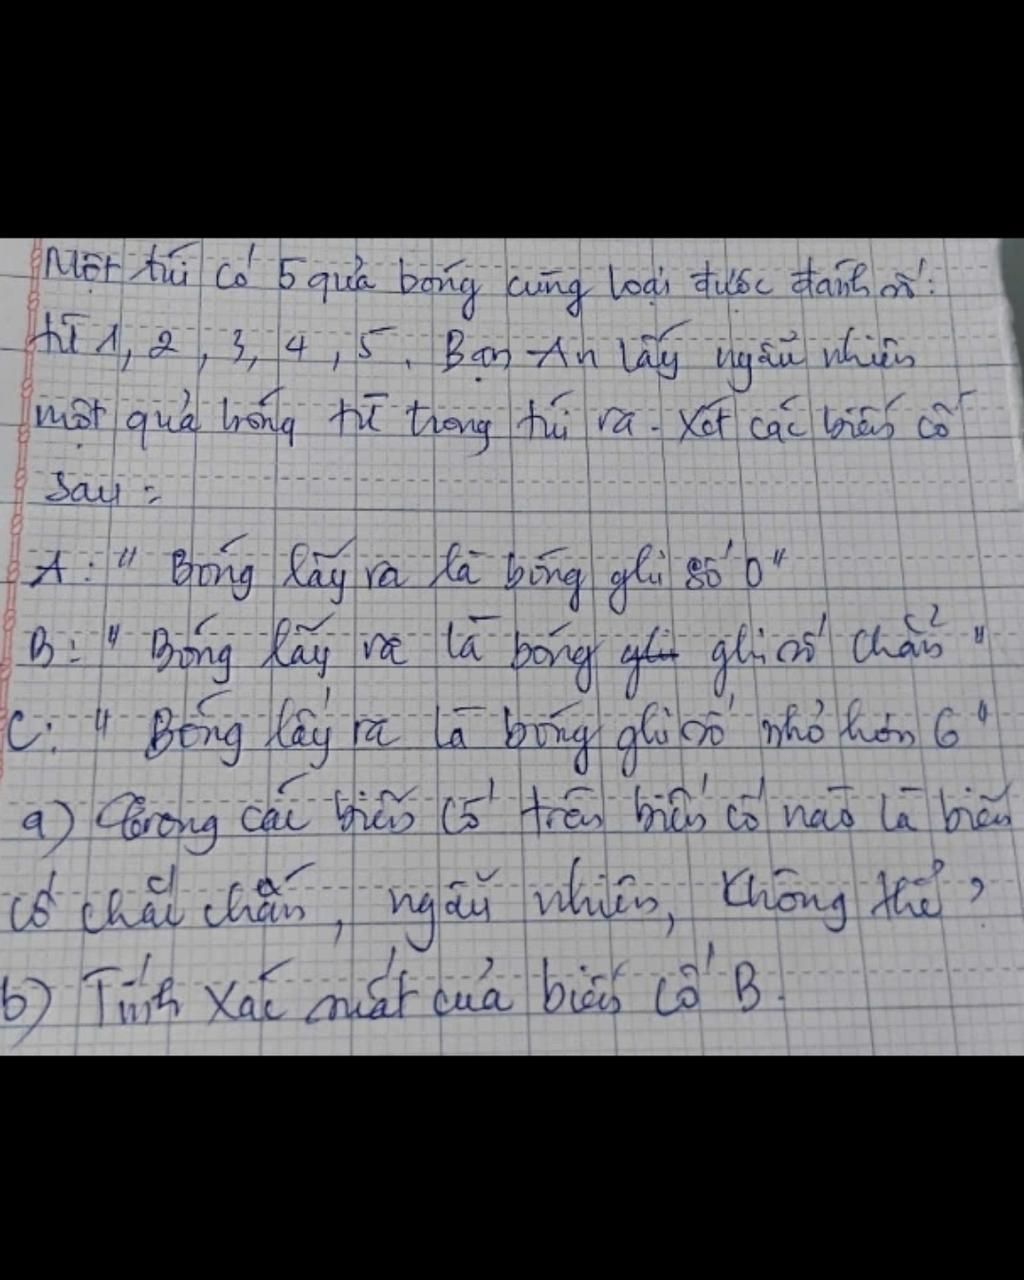 Một túi có 5 quả bóng cùng loại được đánh số:
từ 1, 2, 3, 4, 5. Bạn An lấy ngẫu nhiên
một quả bóng từ trong túi ra. Xét các biến cố
sau:
A: "Bóng lấy ra là bóng ghi số 0"
B: "Bóng lấy ra là bóng ghi số chẵn"
C: "Bóng lấy ra là bóng ghi số nhỏ hơn 6"
a) Trong các biến cố trên biến cố nào là biến
cố chắc chắn, ngẫu nhiên, không thể?
b) Tính xác suất của biến cố B.